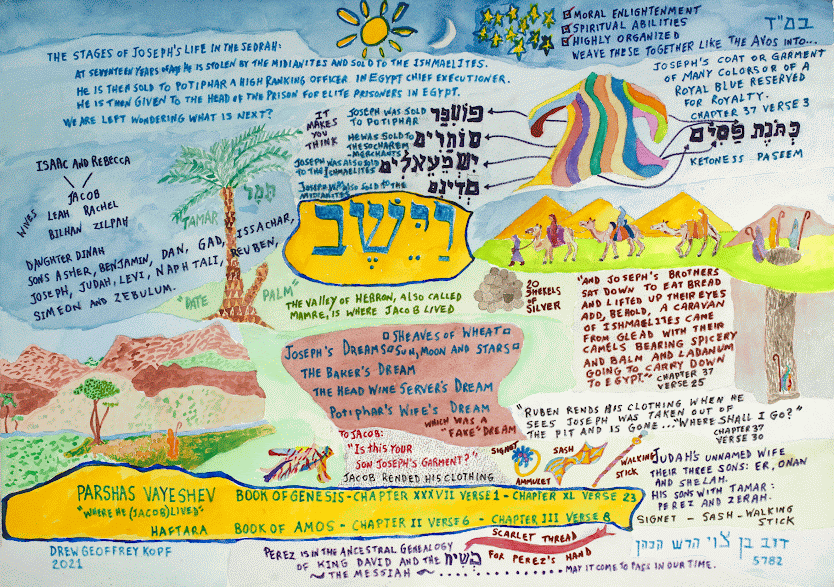 THE STAGES OF JOSEPH'S LIFE IN THE SEDRAH:
AT SEVENTEEN YEARS OF AGE HE IS STOLEN BY THE MIDIANITES AND SOLD TO THE ISHMAELITES.
HE IS THEN SOLD TO POTIPHAR A HIGH RANKING OFFICER IN EGYPT CHIEF EXECUTIONER.
HE IS THEN GIVEN TO THE HEAD OF THE PRISON FOR ELITE PRISONERS IN EGYPT.
WE ARE LEFT WONDERING WHAT IS NEXT?
MORAL ENLIGHTENMENT
SPIRITUAL ABILITIES
HIGHLY ORGANIZED
WEAVE THESE TOGETHER LIKE THE AVOS INTO...
במ"ד
JOSEPH'S COAT OR GARMENT
OF MANY COLORS OR OF A
ROYAL BLUE RESERVED
FOR ROYALTY.
CHAPTER 37 VERSE 3
כְּתֹנֶת פַּסִּים
KETONESS PASEEM
IT
MAKES
YOU
THINK
JOSEPH WAS SOLD
TO POTIPHAR
פוטפר
HE WAS SOLD TO
THE SOCHAREM
-MERCHANTS-
סוחרים
JOSEPH WAS ALSO SOLD
TO THE ISHMAELITES
ישמעאלים
JOSEPH WAS ALSO SOLD TO THE
MIDIANITES
מדינם
ISAAC AND REBECCA
JACOB
WIVES
LEAH RACHEL
BILHAN ZILPAH
DAUGHTER DINAH
SONS ASHER, BENJAMIN, DAN, GAD, ISSACHAR,
JOSEPH, JUDAH, LEVI, NAPHTALI, REUBEN,
SIMEON AND ZEBULUM.
תָּמָר
TAMAR
"DATE PALM"
וַיֵּשֶׁב
THE VALLEY OF HEBRON, ALSO CALLED
MAMRE, IS WHERE JACOB LIVED
20
SHEKELS
OF
SILVER
"AND JOSEPH'S BROTHERS
SAT DOWN TO EAT BREAD
AND LIFTED UP THEIR EYES
ADD, BEHOLD, A CARAVAN
OF ISHMAELITES CAME
FROM GLEAD WITH THEIR
CAMELS BEARING SPICERY
AND BALN AND LADANUM
GOING TO CARRY DOWN
TO EGYPT."
CHAPTER 37
VERSE 25
SHEAVES OF WHEAT
JOSEPH'S DREAMS SUN, MOON AND STARS
THE BAKER'S DREAM
THE HEAD WINE SERVER'S DREAM
POTIPHAR'S WIFE'S DREAM
WHICH WAS A
"FAKE" DREAM
"RUBEN RENDS HIS CLOTHING WHEN HE
SEES JOSEPH WAS TAKEN OUT OF
THE PIT AND IS GONE..."WHERE SHALL I GO?"
CHAPTER 37
VERSE 30
TO JACOB:
"IS THIS YOUR
SON JOSEPH'S GARMENT?"
JACOB RENDED HIS CLOTHING
SIGNET
AMMULET
SASH
WALKING
STICK
JUDAH'S UNNAMED WIFE
THEIR THREE SONS: ER, ONAN
AND SHELAH.
HIS SONS WITH TAMAR:
PEREZ AND ZERAH.
SIGNET - SASH - WALKING
STICK
PARSHAS VAYESHEV
BOOK OF GENESIS - CHAPTER XXXVII VERSE 1 - CHAPTER XL VERSE 23
"WHERE HE (JACOB) LIVED"
HAFTARA
BOOK OF AMOS - CHAPTER II VERSE 6 - CHAPTER III VERSE 8
DREW GEOFFREY KOPF
2021
SCARLET THREAD
FOR PEREZ'S HAND
PEREZ IS IN THE ANCESTRAL GENEALOGY
OF KING DAVID AND THE משיח
~ THE MESSIAH ~ ........ MAY IT COME TO PASS IN OUR TIME.
דוב בן צוי הרש הכהן
5782